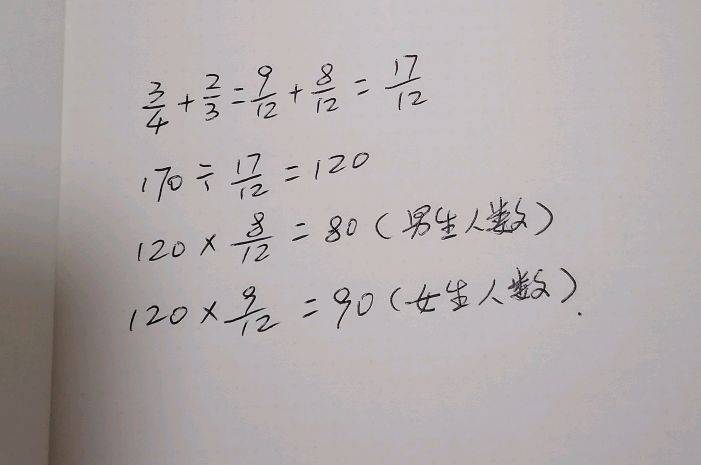 3/4 + 2/3 = 9/12 + 8/12 = 17/12
170 ÷ 17/12 = 120
120 × 8/12 = 80 (男生人数)
120 × 9/12 = 90 (女生人数).